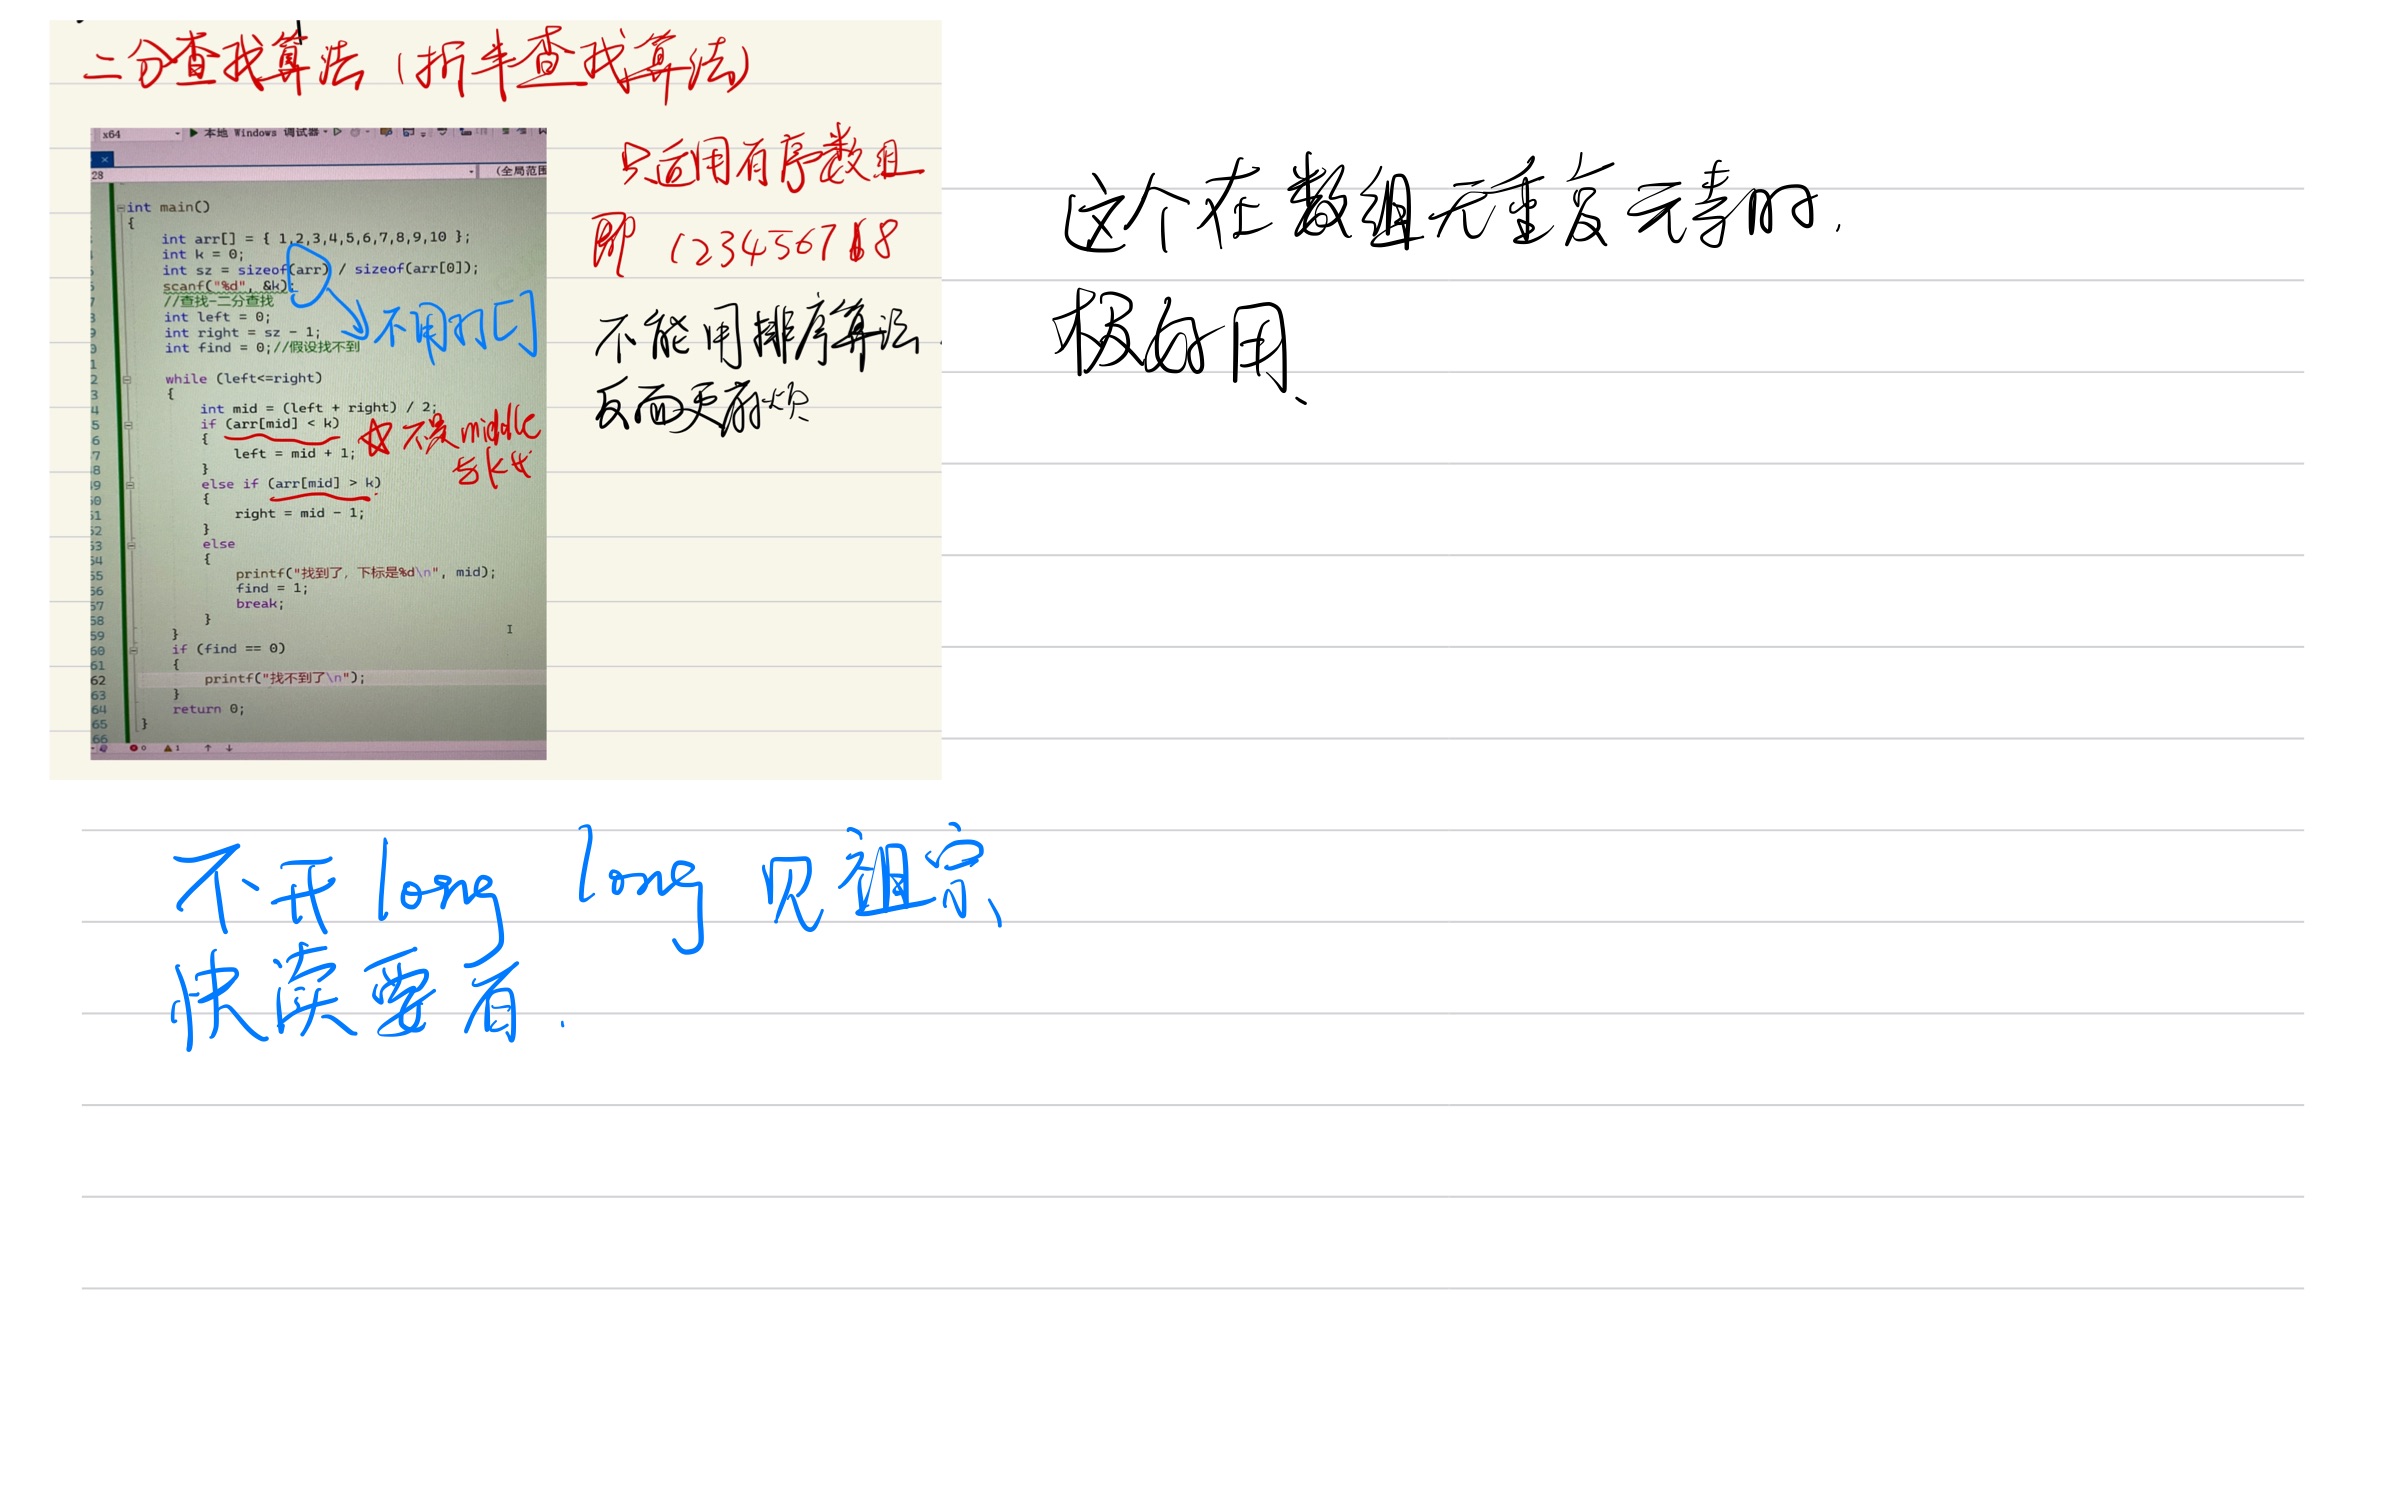 二分查找算法（折半查找算法）
x64 本地 Windows 调试器
28
(全局范围
int main()
{
int arr[] = { 1,2,3,4,5,6,7,8,9,10 };
int k = 0;
int sz = sizeof(arr) / sizeof(arr[0]);
scanf("%d", &k);
//查找-二分查找
int left = 0;
int right = sz - 1;
int find = 0;//假设找不到
while (left<=right)
{
int mid = (left + right) / 2;
if (arr[mid] < k)
{
left = mid + 1;
}
else if (arr[mid] > k)
{
right = mid - 1;
}
else
{
printf("找到了，下标是%d\n", mid);
find = 1;
break;
}
}
if (find == 0)
{
printf("找不到了\n");
}
return 0;
}
不用打[]
不是middle
与k比
只适用有序数组
即 12345678
不能用排序算法
反而更麻烦
这个在数组无重复元素时.
极好用、
不开long long 见祖宗、
快读要有.